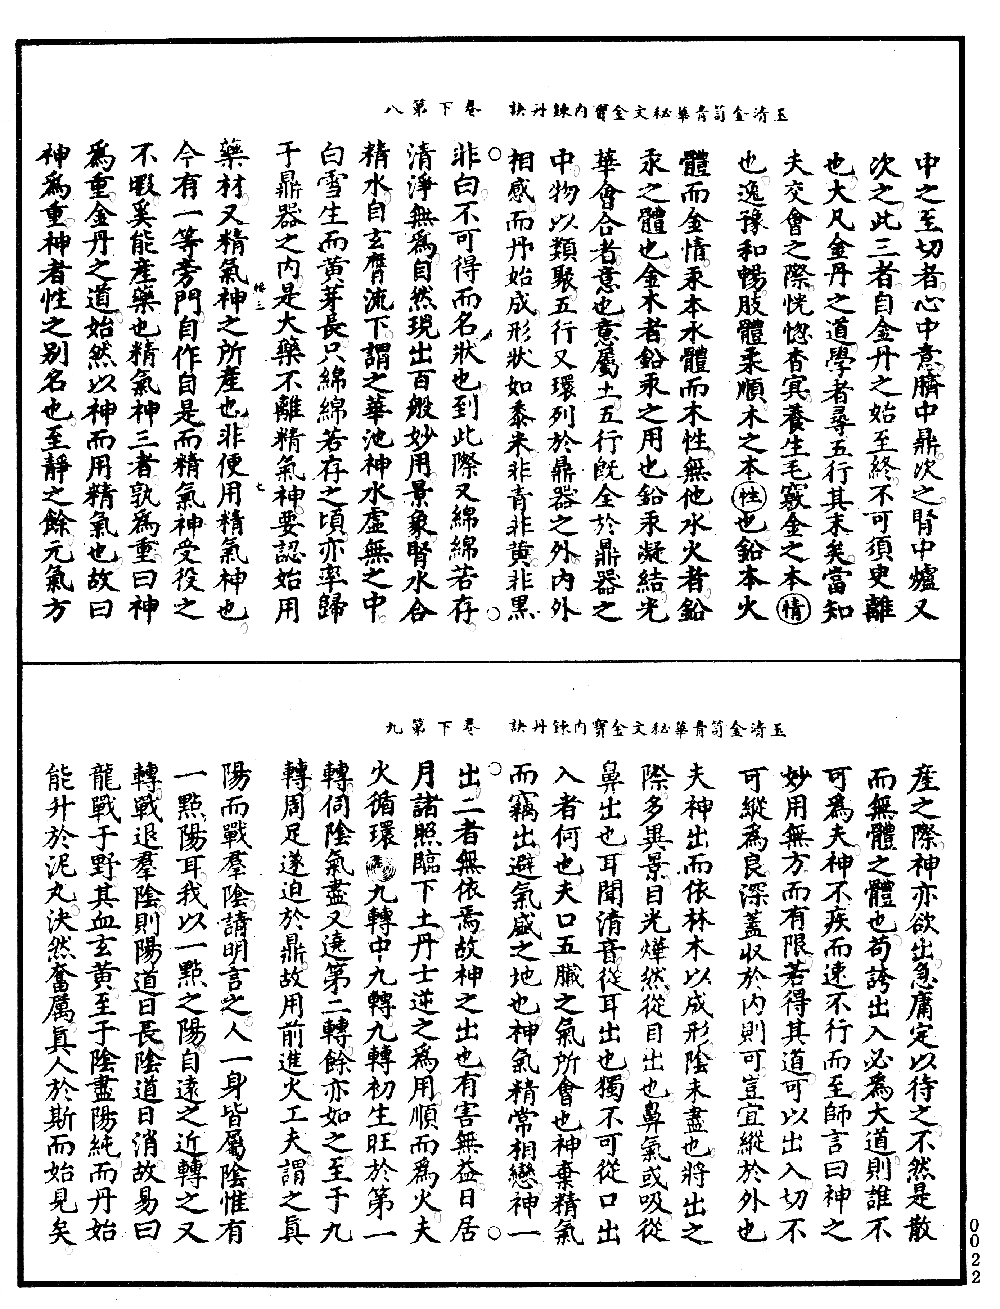 玉清金笥青華秘文金寶內鍊丹訣　卷下第八
中之至切者心中意臍中鼎次之腎中爐又
次之此三者自金丹之始至終不可須臾離
也大凡金丹之道學者尋五行其末矣當知
夫交會之際恍惚杳冥養生毛竅金之本情
也逸豫和暢肢體柔順木之本性也鉛本火
體而金情汞本水體而木性無他水火者鉛
汞之體也金木者鉛汞之用也鉛汞凝結光
華會合者意也意屬土五行既全於鼎器之
中物以類聚五行又環列於鼎器之外內外
相感而丹始成形狀如黍米非青非黃非黑
非白不可得而名狀也到此際又綿綿若存
清淨無為自然現出百般妙用景象腎水合
精水自玄膺流下謂之華池神水虛無之中
白雪生而黃芽長只綿綿若存之頃亦率歸
于鼎器之內是大藥不離精氣神要認始用
藥材又精氣神之所產也非便用精氣神也
今有一等旁門自作自是而精氣神受役之
不暇奚能產藥也精氣神三者孰為重曰神
為重金丹之道始然以神而用精氣也故曰
神為重神者性之別名也至靜之餘元氣方
玉清金笥青華秘文金寶內鍊丹訣　卷下第九
產之際神亦欲出急庸定以待之不然是散
而無體之體也苟誇出入必為大道則誰不
可為夫神不疾而速不行而至師言曰神之
妙用無方而有限若得其道可以出入切不
可縱為良深蓋收於內則可豈宜縱於外也
夫神出而依林木以成形陰未盡也將出之
際多異景目光燁然從目出也鼻氣或吸從
鼻出也耳聞清音從耳出也獨不可從口出
入者何也夫口五臟之氣所會也神棄精氣
而竊出避氣盛之地也神氣精常相戀神一
出二者無依焉故神之出也有害無益日居
月諸照臨下土丹士逆之為用順而為火夫
火循環九轉中九轉九轉初生旺於第一
轉伺陰氣盡又遶第二轉餘亦如之至于九
轉周足遂迫於鼎故用前進火工夫謂之真
陽而戰羣陰請明言之人一身皆屬陰惟有
一點陽耳我以一點之陽自遠之近轉之又
轉戰退羣陰則陽道日長陰道日消故易曰
龍戰于野其血玄黃至于陰盡陽純而丹始
能升於泥丸決然奮厲真人於斯而始見矣
0022